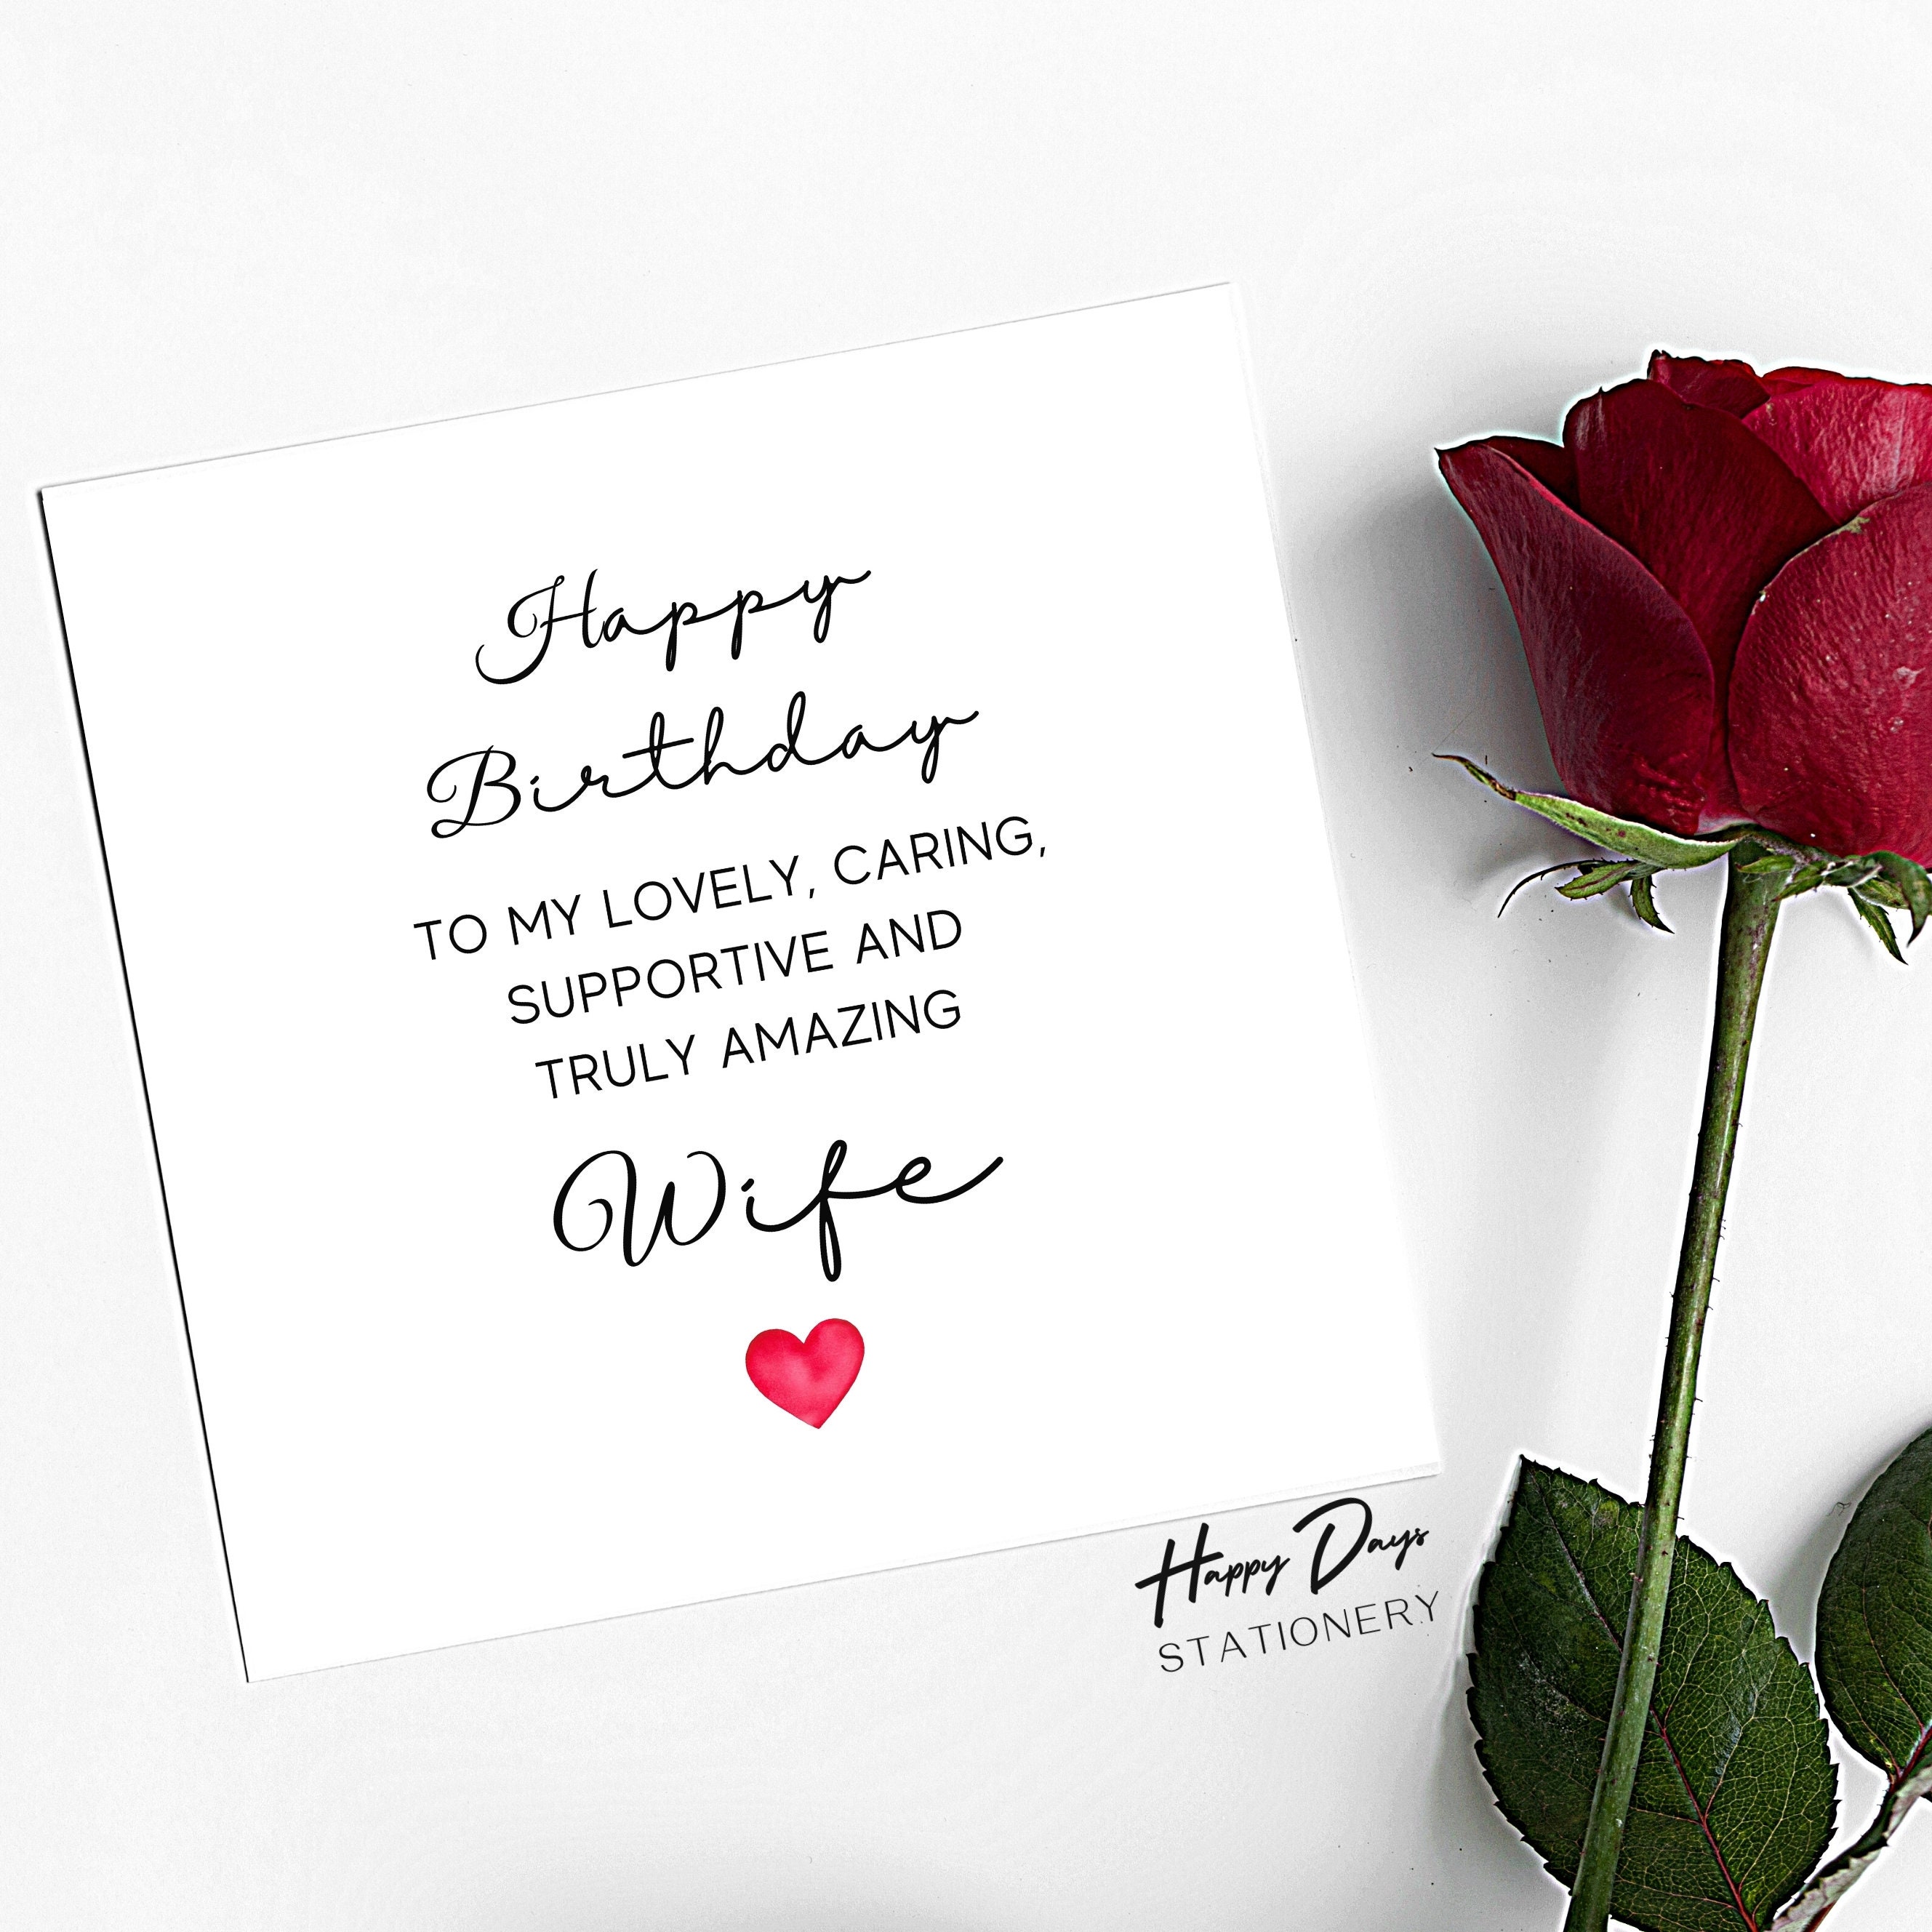 Happy
Birthday
TO MY LOVELY, CARING,
SUPPORTIVE AND
TRULY AMAZING
Wife
Happy Days
STATIONERY